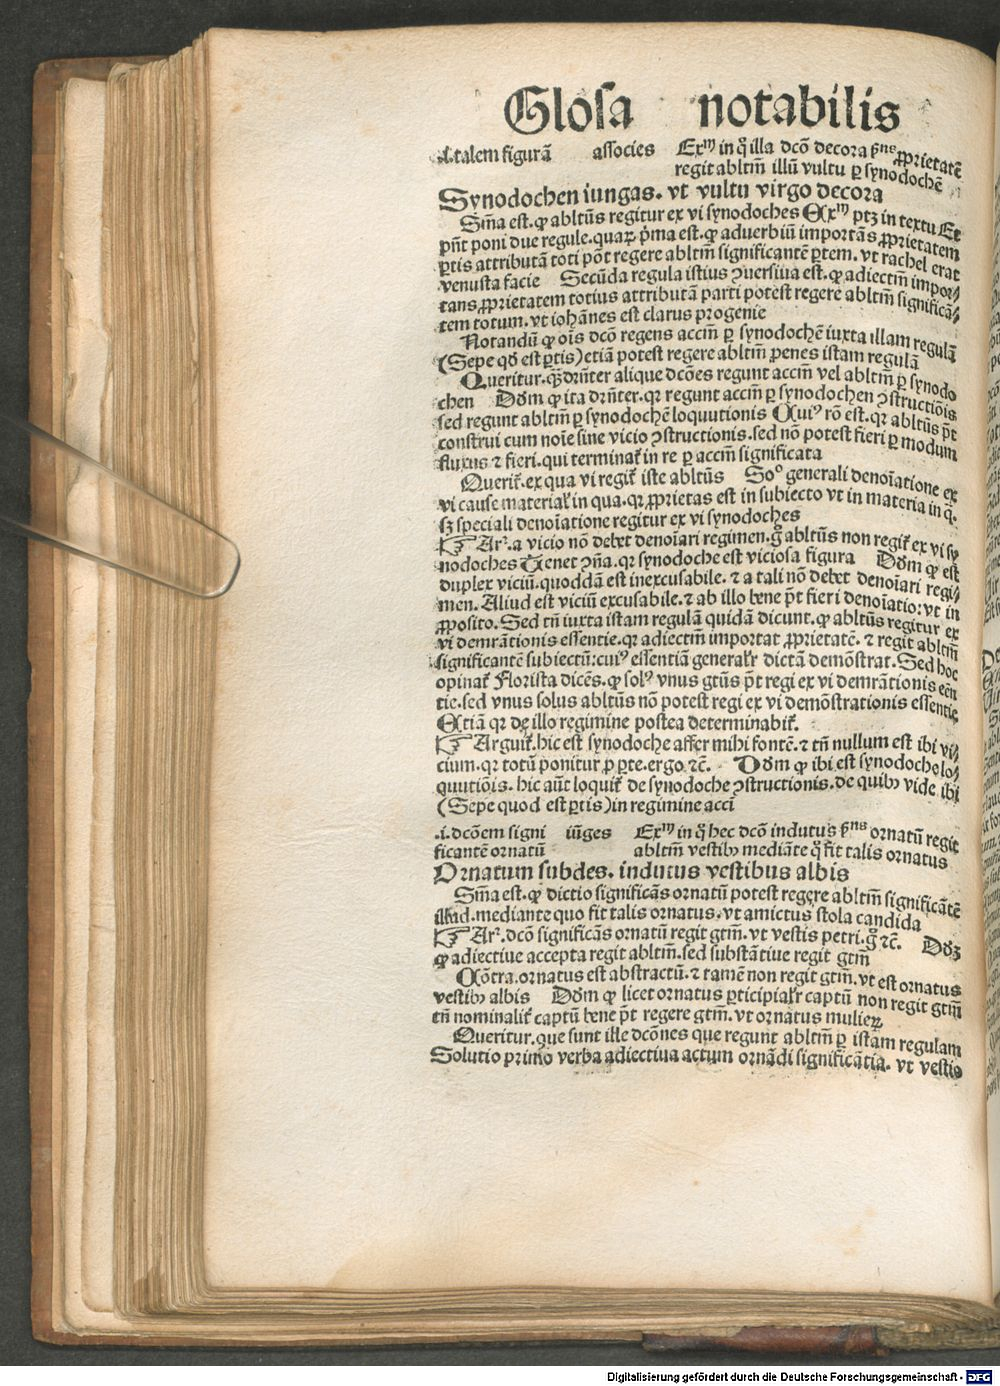 Glosa notabilis
.i. talem figurā associes Exᵐ in q̄ illa dcō decora ꝓns ꝓprietatē
regit abltm̄ illū vultu ꝑ synodochē
Synodochen iungas. vt vultu virgo decora
Sm̄a est. ꝙ abltūs regitur ex vi synodoches Exᵐ ptꝫ in textu Et
pn̄t poni due regule. quaꝝ p̄ma est. ꝙ aduerbiū importās ꝓprietatem
ꝑtis attributā toti pōt regere abltm̄ significantē ꝑtem. vt rachel erat
venusta facie Secūda regula istius ꝯuersiua est. ꝙ adiectm̄ impor⸗
tans ꝓprietatem totius attributā parti potest regere abltm̄ significā⸗
tem totum. vt iohānes est clarus progenie
Notandū ꝙ oīs dcō regens accm̄ ꝑ synodochē iuxta illam regulā
(Sepe qd̄ est ꝑtis) etiā potest regere abltm̄ penes istam regulā
Queritur. qͣ dr̄nter alique dcōes regunt accm̄ vel abltm̄ ꝑ synodo
chen Dd̄m ꝙ ita dr̄nter. qꝛ regunt accm̄ ꝑ synodochen ꝯstructiōis
sed regunt abltm̄ ꝑ synodochē loquutionis Cuiꝰ rō est. qꝛ abltūs pt̄
construi cum noīe sine vicio ꝯstructionis. sed nō potest fieri ꝑ modum
fluxus ⁊ fieri. qui terminat̄ in re ꝑ accm̄ significata
Querit̄. ex qua vi regit̄ iste abltūs Soº generali denoīatione ex
vi cause material̄ in qua. qꝛ ꝓprietas est in subiecto vt in materia in q̄.
sꝫ speciali denoīatione regitur ex vi synodoches
☞ Arꝛ. a vicio nō debet denoīari regimen. gͦ abltūs non regit̄ ex vi sy
nodoches Tenet ꝯn̄a. qꝛ synodoche est viciosa figura Dd̄m ꝙ est
duplex viciū. quoddā est inexcusabile. ⁊ a tali nō debet denoīari regi⸗
men. Aliud est viciū excusabile. ⁊ ab illo bene pt̄ fieri denoīatio: vt in
ꝓposito. Sed tn̄ iuxta istam regulā quidā dicunt. ꝙ abltūs regitur ex
vi demrātionis essentie. qꝛ adiectm̄ importat ꝓprietatē. ⁊ regit abltm̄
significantē subiectū: cuiꝰ essentiā general̄r dictā demōstrat. Sed hoc
opinat̄ Florista dicēs. ꝙ solꝰ vnus gtūs pt̄ regi ex vi demrātionis eēn
tie. sed vnus solus abltūs nō potest regi ex vi demōstrationis essentie
Etiā qꝛ de illo regimine postea determinabit̄.
☞ Arguit̄. hic est synodoche affer mihi fontē. ⁊ tn̄ nullum est ibi vi⸗
cium. qꝛ totū ponitur ꝓ ꝑte. ergo ⁊c̄. Dd̄m ꝙ ibi est synodoche lo⸗
quutiōis. hic aūt loquit̄ de synodoche ꝯstructionis. de quibꝰ vide ibi
(Sepe quod est ꝑtis) in regimine acci
.i. dcōem signi iūges Exᵐ in q̄ hec dcō indutus ꝓns ornatū regit
ficantē ornatū abltm̄ vestibꝰ mediāte q̄ fit talis ornatus
Ornatum subdes. indutus vestibus albis
Sm̄a est. ꝙ dictio significās ornatū potest regere abltm̄ significātē
illud. mediante quo fit talis ornatus. vt amictus stola candida
☞ Arꝛ. dcō significās ornatū regit gtm̄. vt vestis petri. gͦ ⁊c̄. Ddꝫ
ꝙ adiectiue accepta regit abltm̄. sed substātiue regit gtm̄
Cōtra. ornatus est abstractū. ⁊ tamē non regit gtm̄. vt est ornatus
vestibꝰ albis Dd̄m ꝙ licet ornatus ꝑticipial̄r captū non regit gtm̄
tn̄ nominalit̄ captū bene pt̄ regere gtm̄. vt ornatus mulieꝝ
Queritur. que sunt ille dcōnes que regunt abltm̄ ꝑ istam regulam
Solutio primo verba adiectiua actum ornādi significātia. vt vestio
Digitalisierung gefördert durch die Deutsche Forschungsgemeinschaft - DFG